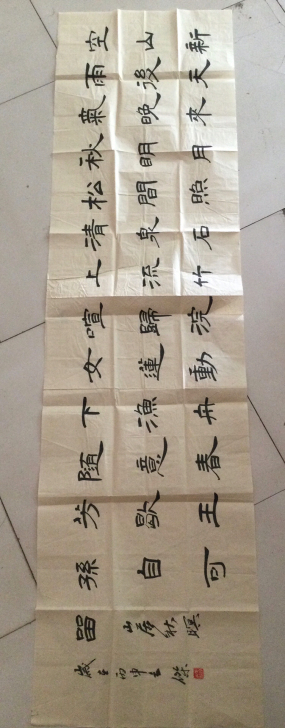 空山新
雨後天
氣晚來
秋明月
松間照
清泉石
上流竹
喧歸浣
女蓮動
下漁舟
隨意春
芳歇王
孫自可
留 山居秋暝
歲 丙申 傑